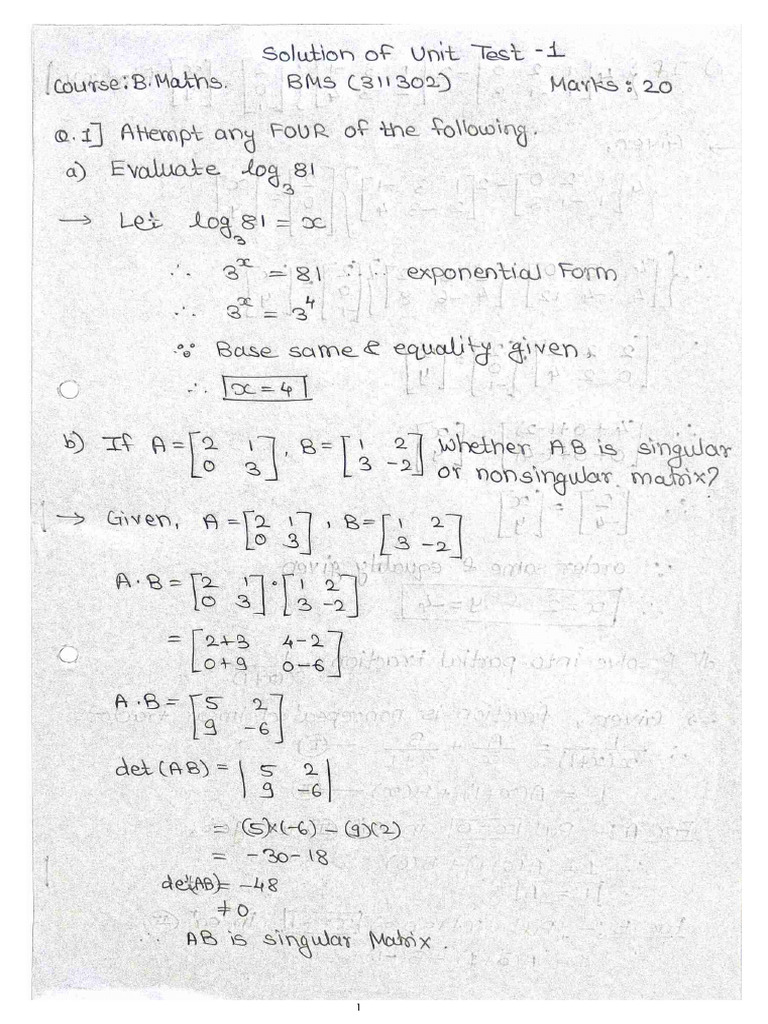 Solution of Unit Test -1
Course: B.Maths. BMS (311302) Marks: 20
Q.1] Attempt any FOUR of the following.
a) Evaluate log₃81
→ Let log₃81 = x
∴ 3ˣ = 81 ∵ exponential Form
∴ 3ˣ = 3⁴
∵ Base same & equality given.
∴ x = 4
b) If A = [2 1; 0 3], B = [1 2; 3 -2] whether AB is singular
or nonsingular matrix?
→ Given, A = [2 1; 0 3], B = [1 2; 3 -2]
A·B = [2 1; 0 3]·[1 2; 3 -2]
= [2+3 4-2; 0+9 0-6]
A·B = [5 2; 9 -6]
det(AB) = |5 2; 9 -6|
= (5)×(-6) - (9)(2)
= -30-18
det(AB) = -48
≠0
∴ AB is singular Matrix.
1